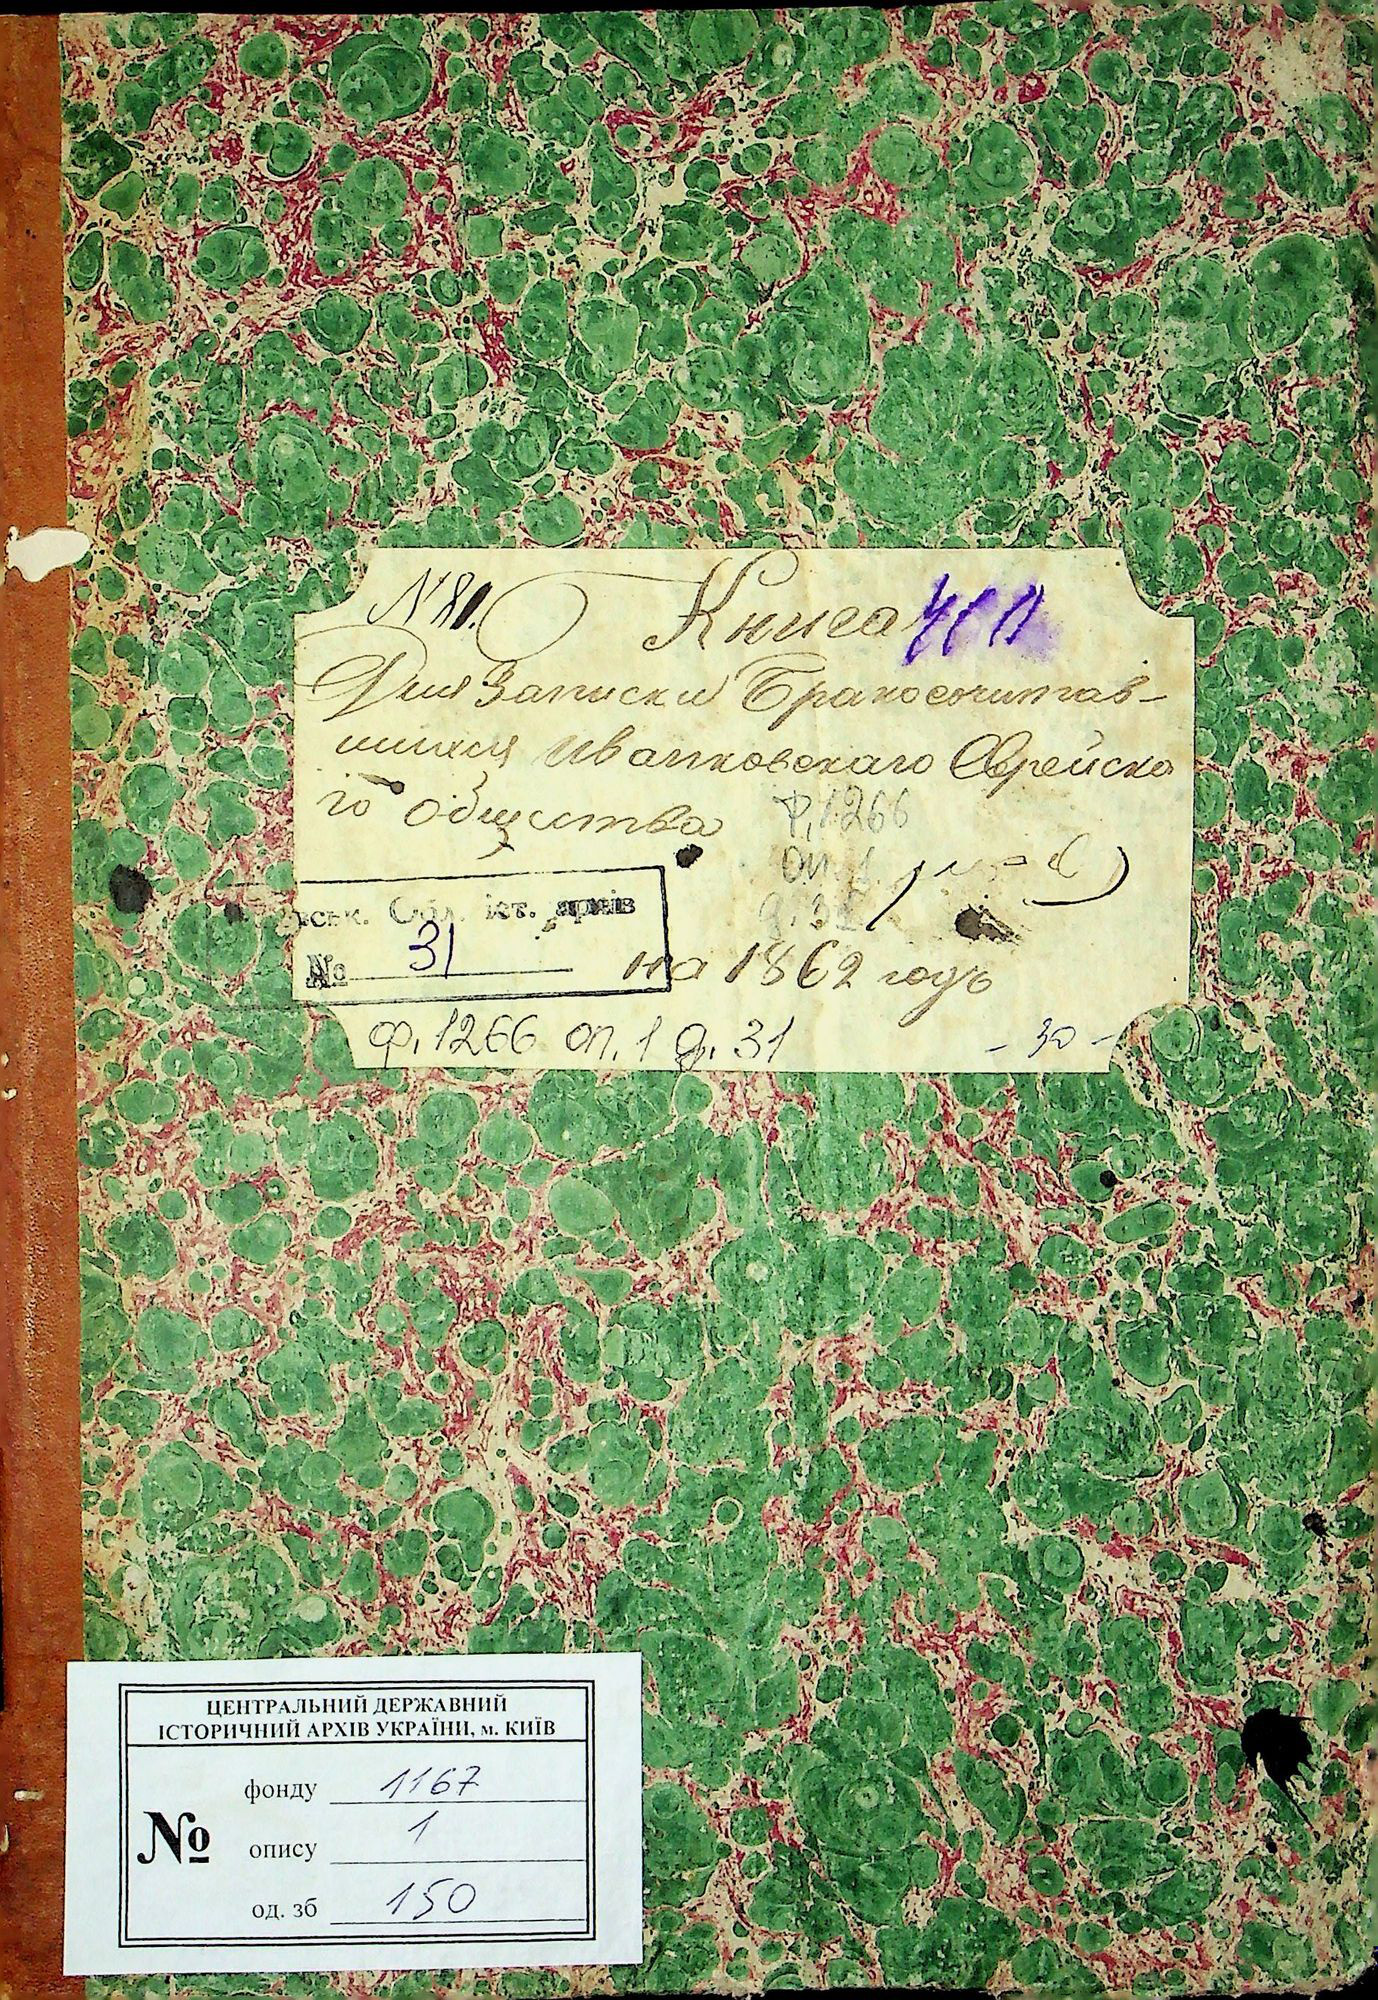 № 81. Книга
Для Записки Бракосочитав-
шихся Иванковскаго Еврейска
го общества
ф. 1266
оп. 1
д. 31
ськ. Обл. іст. архів
№ 31
на 1862 годъ
ф. 1266 оп. 1 д. 31 - 30 -
ЦЕНТРАЛЬНИЙ ДЕРЖАВНИЙ
ІСТОРИЧНИЙ АРХІВ УКРАЇНИ, м. КИЇВ
№
фонду 1167
опису 1
од. зб 150